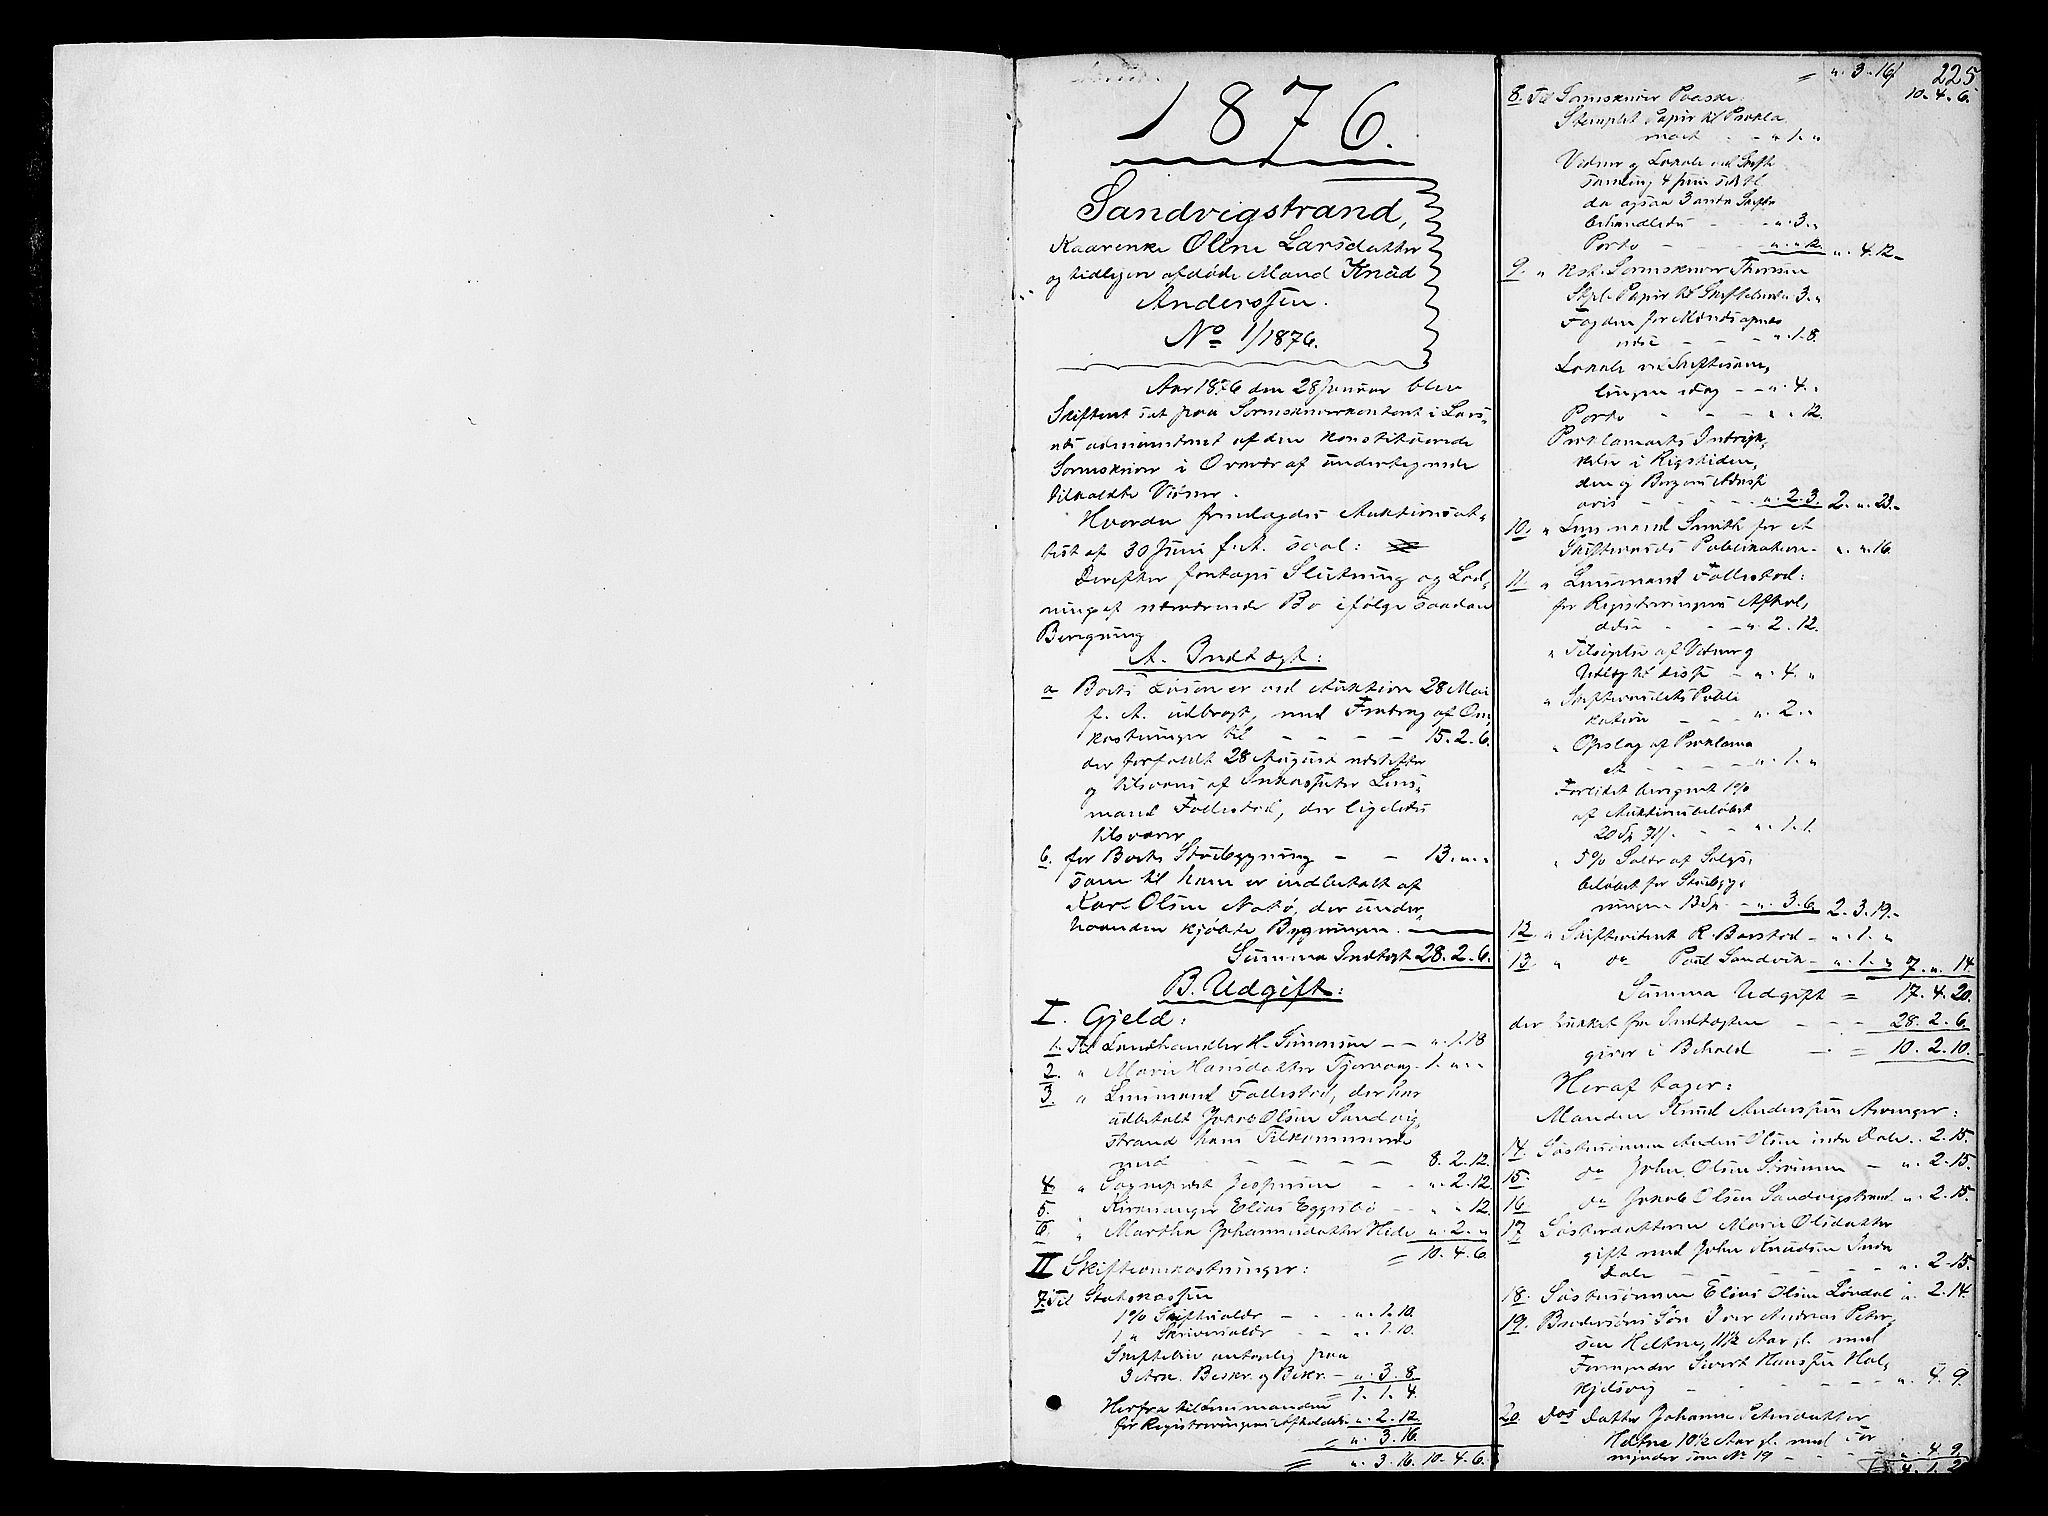 1876.
Sandvigstrand,
Kaarenke Oline Larsdatter
og tidligere afdøde Mand Knud
Anderssen.
No 1/1876.
Aar 1876 den 28 Januar blev
Skifteret sat paa Sorenskriverkontoret i
administreret af den konstituerede
Sorenskriver i Overvær af undertegnede
tilkaldte Vidner.
Hvorda fremlagdes Auktionsat-
test af 30 Juni f. A. saal:
Derefter foretoges Slutning og Lod-
ning af nærværende Bo ifølge saadan
Beregning
A. Indtægt:
a Boets Løsøre er ved Auktion 28 Mai
f. A. udbragt, med Fradrag af Om-
kostninger til - - - - 15. 2. 6.
der forfaldt 28 August næstefter
og tilsvares af Inkassator Lens-
mand Follestad, der ligeledes
tilsvarer
b. for Boets Stuebygning - - 13. " . "
som til ham er indbetalt af
Karl Olsen Natø, der under-
haanden kjøbte Bygningen.
Summa Indtægt 28. 2. 6.
B. Udgift:
I. Gjeld:
1. Til Landhandler H. Simonsen - - " . 1. 18
2. " Marie Hansdatter Tjervaag . 1. " . "
3. " Lensmand Follestad, der har
udbetalt Jakob Olsen Sandvig-
strand hans Tilkommende
med - - - - 8. 2. 12.
4. " Sogneprest Jespersen - - " . 2. 12.
5. " Kirkesanger Elias Eggesbø - - " " 12.
6. " Martha Johannesdatter Heide " . 2. "
= 10. 4. 6.
II Skifteomkostninger:
7. Til Statskassen
1 % Skiftesalær - - " . 1. 10.
1 " Skriversalær - - " . 1. 10.
Skiftebrev antagelig paa
3 Ark. Beskr. og Bekr. - " . 3. 8.
= 1. 1. 4.
Herfra til Lensmanden
for Registreringens Afholdelse " . 2. 12.
= " . 3. 16.
= " . 3. 16. 10. 4. 6.
225
= " . 3. 16 10. 4. 6.
8. Til Sorenskriver Paaske.
Stemplet Papir til Prokla
maet - - " . 1. "
Vidner og Lokale ved Skifte
samling 4 Juni
da ogsaa 3 andre Skifter
behandledes - - " . 3. "
Porto - - - " . " 12. " . 4. 12.
9. " Kst. Sorenskriver Thoresen
Stpl. Papir til Skiftebrevet " 3. "
Fogden for
- - - " . 1. 8.
Lokale ved Skiftesam-
lingen idag - - " . 4. "
Porto - - - " . " 12.
Proklamaets Indryk-
kelse i Rigstiden-
den og Bergens Adresse
avis - - - " . 2. 3. 2. " . 23.
10. " Lensmand Smith for et
Skifterets Publikation - " . " . 16.
11. " Lensmand Follestad:
for Registreringens Afhol-
delse - - - " . 2. 12.
" Tilsigelse af Vidner og
Udlæg til disse - " . 4. "
" Skifterettets Publi
kation - - " . 2. "
" Opslag af Proklama
et - - - - " . 1. "
Forbudet beregnet 1 %
af Auktionsbeløbet
20 Sp - - " . 1. 1.
" 5 % Salær af Salgs-
beløbet for Stuebyg-
ningen 13 Sp. - " . 3. 6. 2. 3. 19.
12 " Skiftevidnet R. Barstad - " . 1. "
13. " do Paul Sandvik - " . 1. " 7. " . 14.
Summa Udgift = 17. 4. 20.
der trukket fra Indtægten - - - 28. 2. 6.
giver i Behold - = 10. 2. 10.
Heraf tager:
Manden Knud Anderssens Arvinger:
14. Søstersønnen Anders Olsen indre Dale . . 2. 15.
15. do John Olsen - " . 2. 15.
16 do Jakob Olsen Sandvigstrand . " . 2. 15.
17 Søsterdatteren Marie Olsdatter
gift med John Knudsen Indre
Dale - - - - " . 2. 15.
18. Søstersønnen Elias Olsen Løvdal " . 2. 14.
19. Brodersøns Søn Iver Andreas Peter-
sen Heltne, 11½ Aar gl. med
Formynder Sivert Hanssen Hal-
kjelsvig - - - - " . 4. 9.
20. Dos Datter Johanne Petersdatter
Heltne 10½ Aar gl. med For
mynder som No 19 - - " . 4. 9.
4. 1. 2